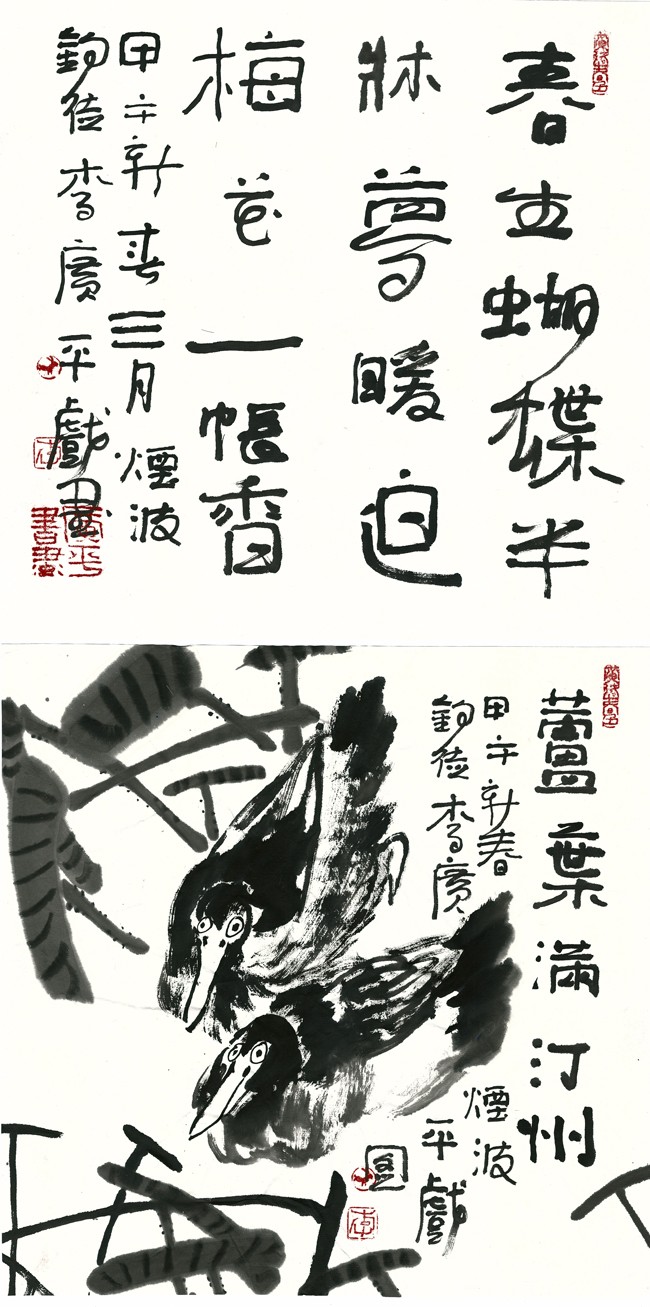 春生蝴蝶半
牀夢暖迫
梅花一帳香
甲午新春三月煙波
釣徒李廣平戲畫
蘆葉滿汀州
甲午新春煙波
釣徒李廣平戲
圖